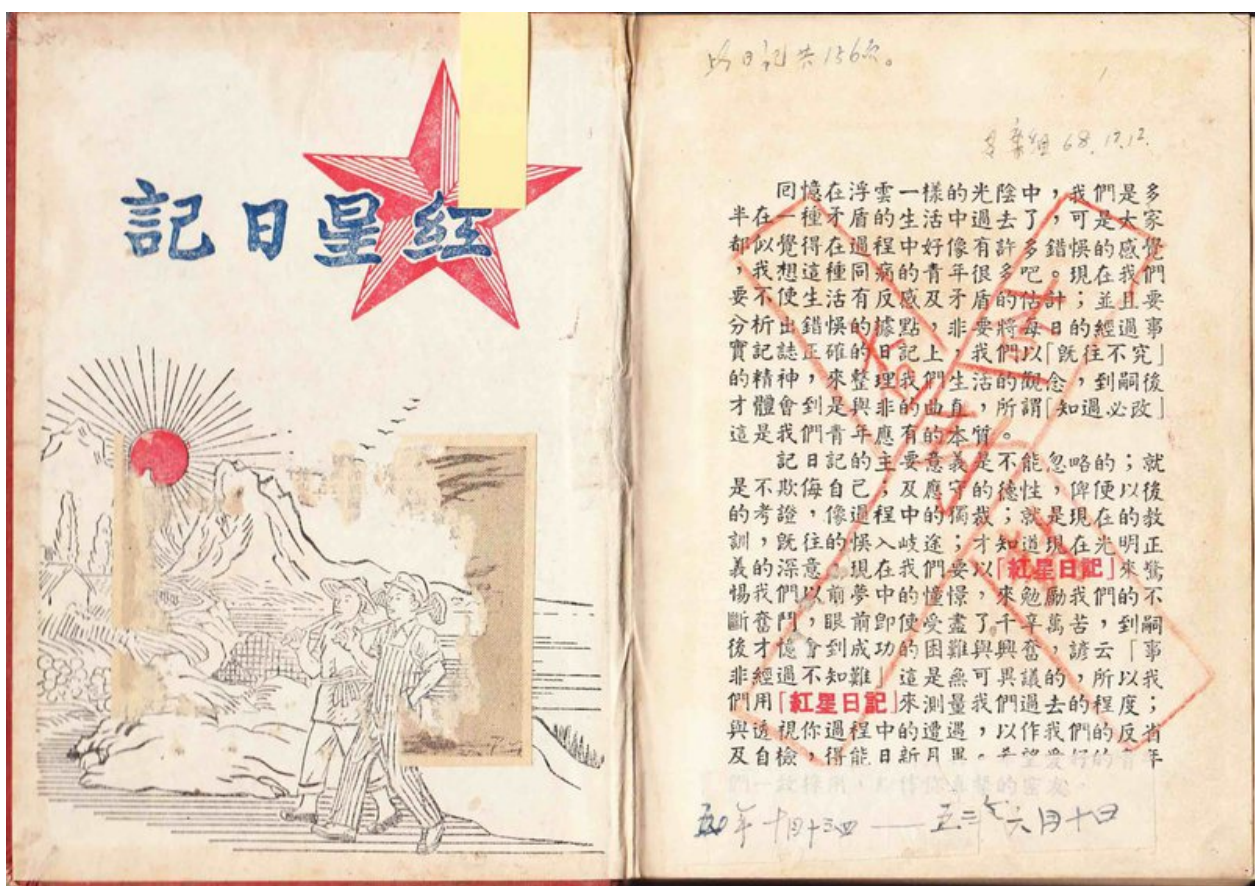 紅星日記
此日記共156頁。
回憶在浮雲一樣的光陰中，我們是多
半在一種矛盾的生活中過去了，可是大家
都似覺得在過程中好像有許多錯悞的感覺
，我想這種同病的青年很多吧。現在我們
要不使生活有反感及矛盾的估計；並且要
分析出錯悞的據點，非要將每日的經過事
實記誌正確的日記上，我們以「旣往不究」
的精神，來整理我們生活的觀念，到嗣後
才體會到是與非的曲直，所謂「知過必改」
這是我們青年應有的本質。
記日記的主要意義是不能忽略的；就
是不欺侮自己，及應守的德性，俾便以後
的考證，像過程中的獨裁；就是現在的教
訓，旣往的悞入岐途；才知道現在光明正
義的深意，現在我們要以「紅星日記」來驚
惕我們以前夢中的憧憬，來勉勵我們的不
斷奮鬥，眼前卽使受盡了千辛萬苦，到嗣
後才憶會到成功的困難與興奮，諺云「事
非經過不知難」這是無可異議的，所以我
們用「紅星日記」來測量我們過去的程度；
與透視你過程中的遭遇，以作我們的反省
及自檢，得能日新月異。希望愛好的青年
年十月十三日——五三年六月十日